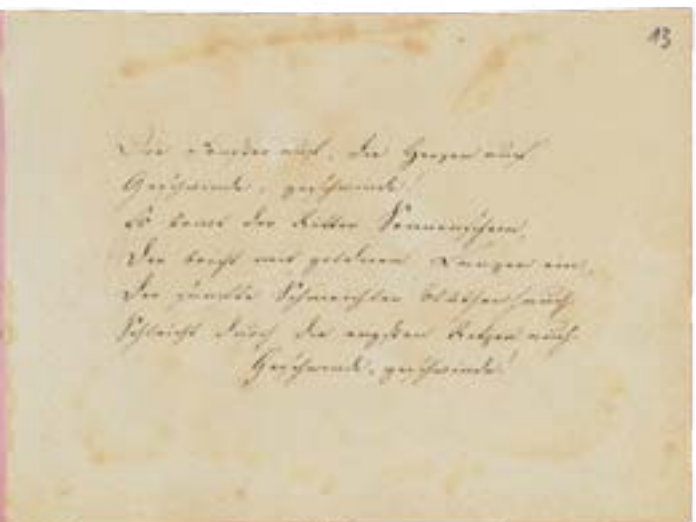 13
Die Fenster auf, die Herzen auf
Geschwinde, geschwinde!
Es komt der Ritter Sonnenschein,
Der bricht mit goldenen Lanzen ein,
Der sanfte Schmeichler Blüthenhauch
Schleicht durch die engsten Ritzen auch
Geschwinde, geschwinde!